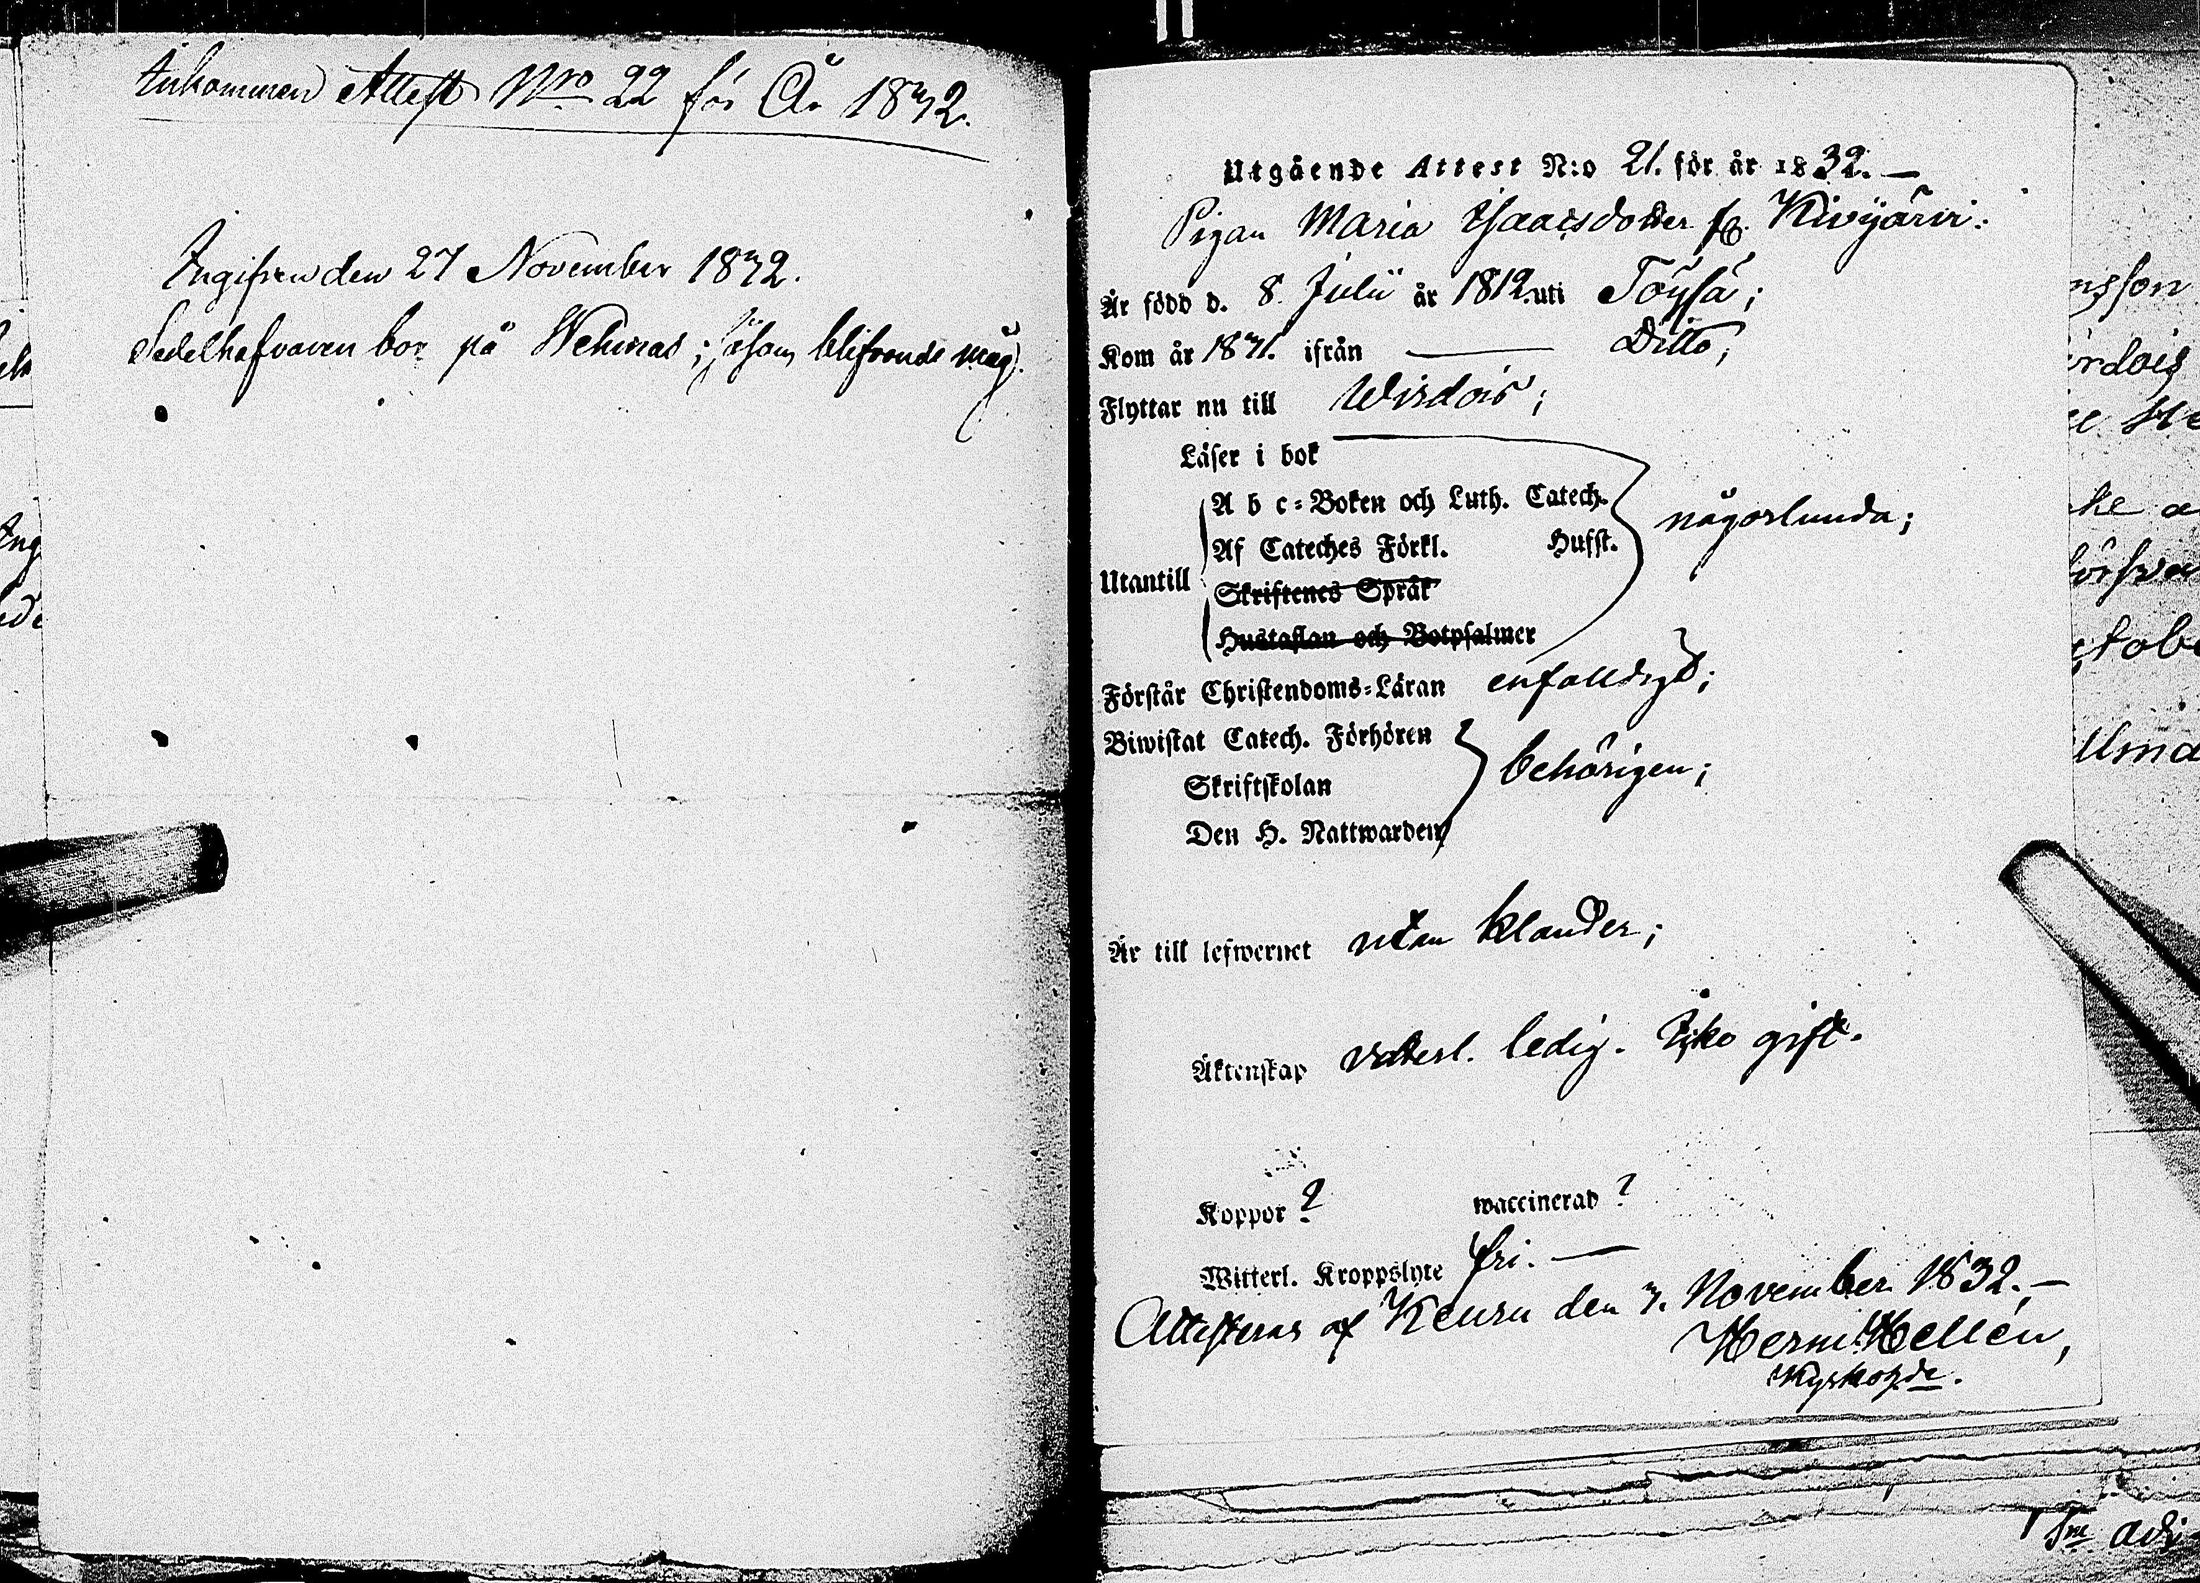 Ankommen Attest Nro 22 för År 1832.
Ingifven den 27 November 1832.
Sedelhafvaren bor på Wehmas; såsom blifvande måg.
Utgående Attest N:o 21. för år 1832. —
Pigan Maria Isaacsdotter fr. Kivijärvi:
Är född d. 8. Julii år 1812. uti Töysä;
Kom år 1831. ifrån — Ditto;
Flyttar nu till Wirdois;
Läser i bok
A b c-Boken och Luth. Catech.
någorlunda;
Af Cateches Förkl. Hufst.
Utantill
Skriftenes Språk
Hustaflan och Botpsalmer
Förstår Christendoms-Läran enfaldigt;
Biwistat Catech. Förhören
behörigen;
Skriftskolan
Den H. Nattwarden
Är till lefwernet utan klander;
Äktenskap veterl. ledig. Icke gift.
Koppor ? waccinerad ?
Witterl. Kroppslyte fri. —
Attesteras af Keuru den 7. November 1832. —
Herm. Hellén,